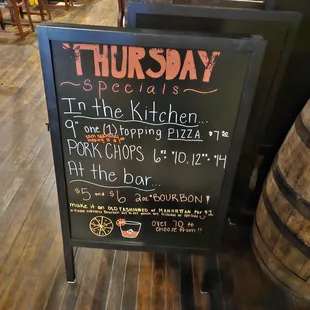 THURSDAY
Specials
In the Kitchen...
9" one (1) topping PIZZA $7.50
PORK CHOPS 6oz $10, 12oz $14
At the bar...
$5 and $6 2oz BOURBON!
make it an OLD FASHIONED or MANHATTAN for $2
over 70 to
choose from!!